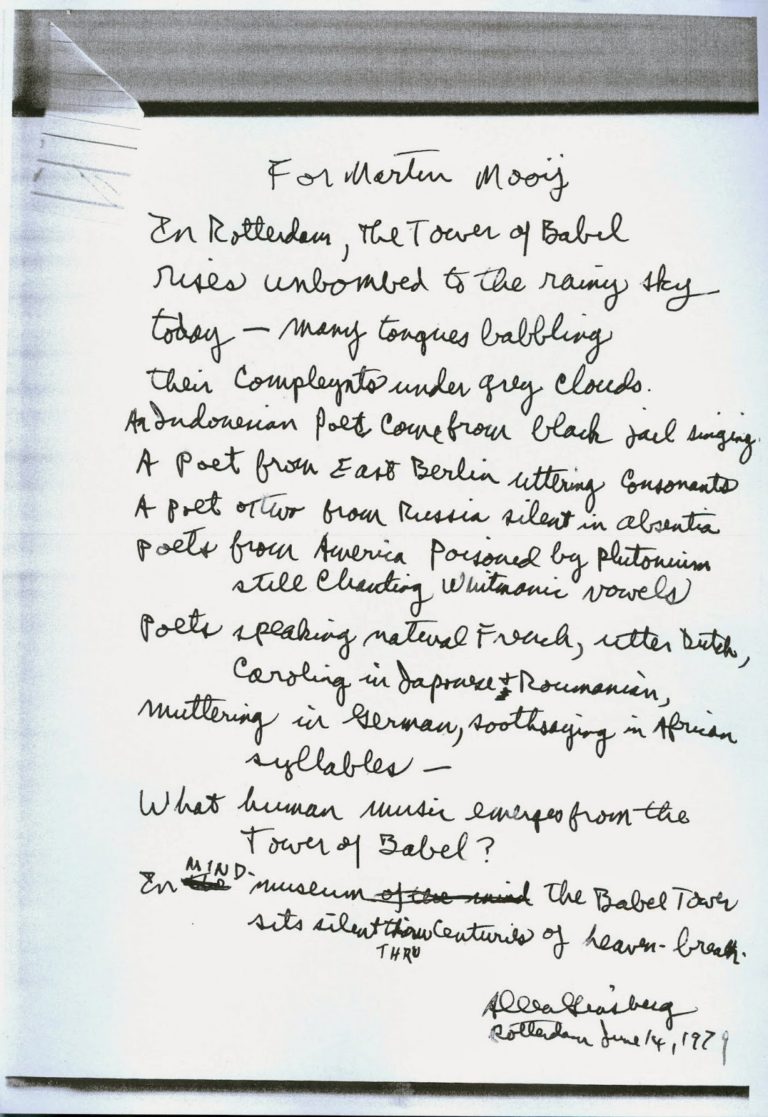 For Martin Mooij
In Rotterdam, the Tower of Babel
rises unbombed to the rainy sky
today — many tongues babbling
their Compleynts under grey clouds.
An Indonesian Poet Come from black jail singing
A Poet from East Berlin uttering Consonants
A poet or two from Russia silent in absentia
Poets from America Poisoned by Plutonium
still Chanting Whitmanic vowels
Poets speaking natural French, utter Dutch,
Caroling in Japanese & Roumanian,
Muttering in German, soothsaying in African
syllables —
What human music emerges from the
Tower of Babel?
MIND-
In the museum of the mind the Babel Tower
sits silent thru Centuries of heaven-break.
THRU
Allen Ginsberg
Rotterdam June 14, 1979